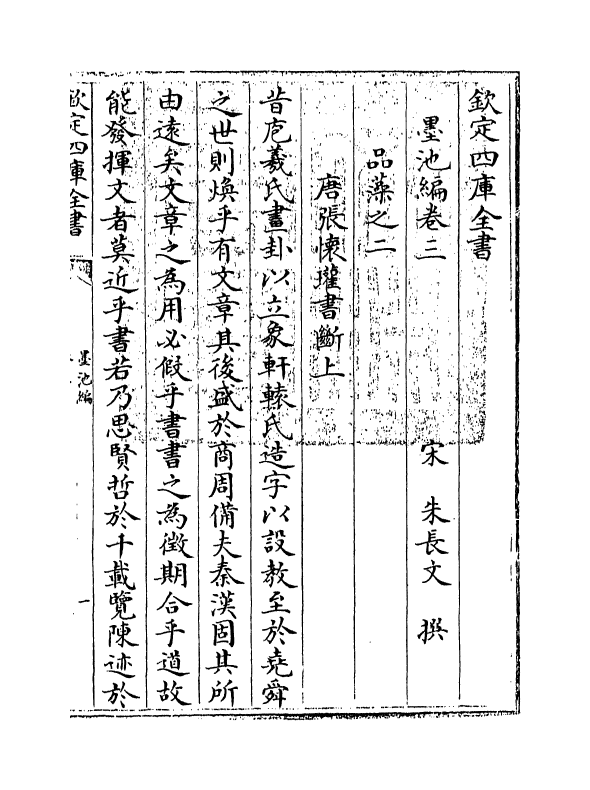 欽定四庫全書
墨池編卷三　宋　朱長文　撰
品藻之二
唐張懷瓘書斷上
昔庖羲氏畫卦以立象軒轅氏造字以設教至於堯舜
之世則煥乎有文章其後盛於商周備夫秦漢固其所
由遠矣文章之為用必假乎書書之為徴期合乎道故
能發揮文者莫近乎書若乃思賢哲於千載覽陳迹於
欽定四庫全書
墨池編
一